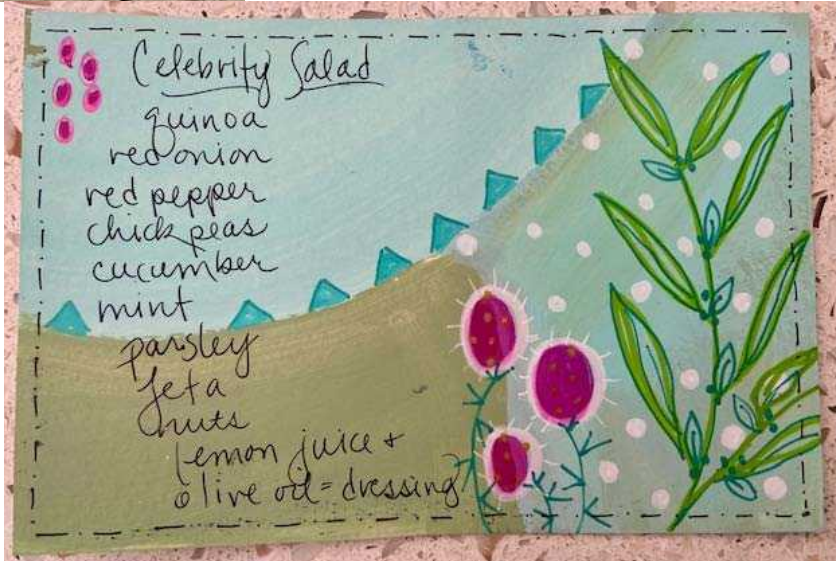 Celebrity Salad
quinoa
red onion
red pepper
chick peas
cucumber
mint
parsley
feta
nuts
lemon juice +
olive oil = dressing